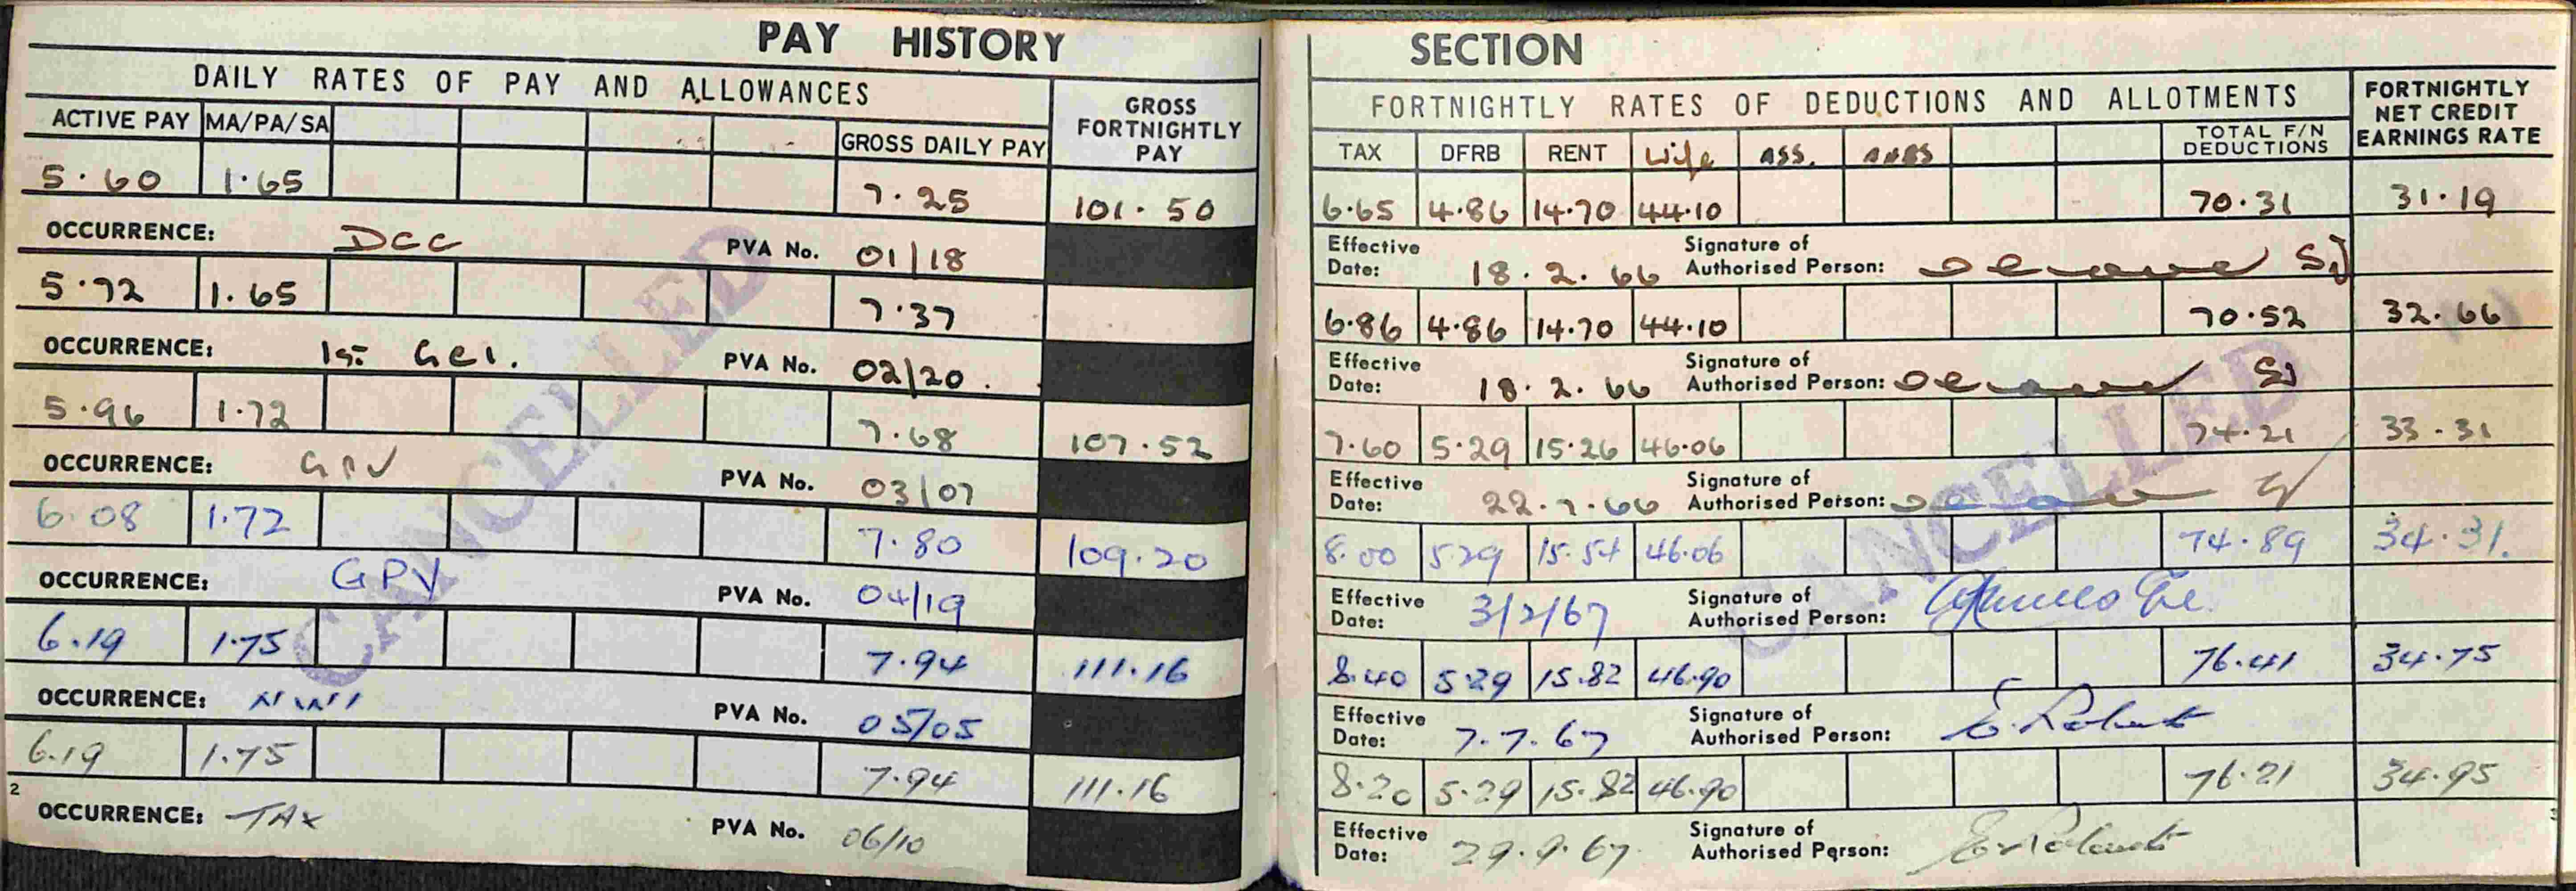 PAY HISTORY SECTION
DAILY RATES OF PAY AND ALLOWANCES
GROSS FORTNIGHTLY PAY
ACTIVE PAY MA/PA/SA GROSS DAILY PAY
5.60 1.65 7.25 101.50
OCCURRENCE: DCC PVA No. 01/18
5.72 1.65 7.37
OCCURRENCE: 1st PVA No. 02/20.
5.96 1.72 7.68 107.52
OCCURRENCE: PVA No. 03/07
6.08 1.72 7.80 109.20
OCCURRENCE: GPV PVA No. 04/19
6.19 1.75 7.94 111.16
OCCURRENCE: PVA No. 05/05
6.19 1.75 7.94 111.16
2
OCCURRENCE: TAX PVA No. 06/10
CANCELLED
FORTNIGHTLY RATES OF DEDUCTIONS AND ALLOTMENTS
FORTNIGHTLY NET CREDIT EARNINGS RATE
TAX DFRB RENT Wife ASS. TOTAL F/N DEDUCTIONS
6.65 4.86 14.70 44.10 70.31 31.19
Effective Date: 18.2.66 Signature of Authorised Person:
6.86 4.86 14.70 44.10 70.52 32.66
Effective Date: 18.2.66 Signature of Authorised Person:
7.60 5.29 15.26 46.06 74.21 33.31
Effective Date: 22.7.66 Signature of Authorised Person:
8.00 5.29 15.54 46.06 74.89 34.31.
Effective Date: 3/2/67 Signature of Authorised Person:
8.40 5.29 15.82 46.90 76.41 34.75
Effective Date: 7.7.67 Signature of Authorised Person:
8.20 5.29 15.82 46.90 76.21 34.95
Effective Date: 29.9.67 Signature of Authorised Person:
3
CANCELLED